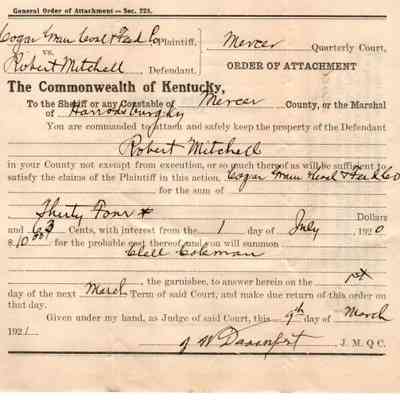 General Order of Attachment — Sec. 228.
Cogar Grain Coal & Feed Co Plaintiff, Mercer Quarterly Court,
vs.
Robert Mitchell, Defendant. ORDER OF ATTACHMENT
The Commonwealth of Kentucky,
To the Sheriff or any Constable of Mercer County, or the Marshal
of Harrodsburg Ky
You are commanded to attach and safely keep the property of the Defendant
Robert Mitchell
in your County not exempt from execution, or so much thereof as will be sufficient to
satisfy the claims of the Plaintiff in this action, Cogar Grain Coal & Feed Co
for the sum of
Thirty Four Dollars
and 63 Cents, with interest from the 1 day of July, 1920
$ 10 for the probable cost thereof and you will summon
Clell Coleman
, the garnishee, to answer herein on the 1st
day of the next March Term of said Court, and make due return of this order on
that day.
Given under my hand, as Judge of said Court, this 9th day of March
1921.
J W Davenport J. M. Q. C.